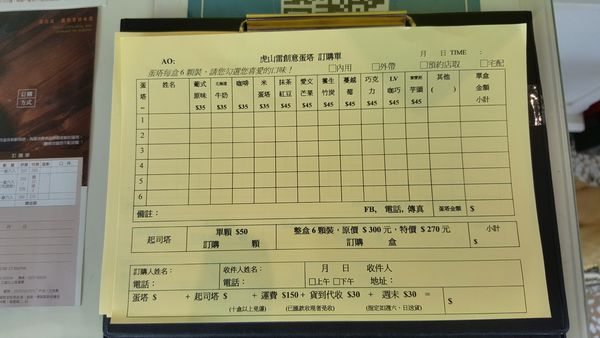 AO:
虎山雷創意蛋塔 訂購單
月 日 TIME :
蛋塔每盒 6 顆裝,請您勾選您喜愛的口味!
□內用 □外帶 □預約店取 □宅配
蛋塔 姓名 葡式原味 $35 北海道牛奶 $35 咖啡 $35 米蛋塔 $35 抹茶紅豆 $45 愛文芒果 $45 養生竹炭 $45 蔓越莓 $45 巧克力 $45 LV咖巧 $45 芋頭 $45 其他 ( ) 單盒金額小計
1
2
3
4
5
6
備註: FB, 電話, 傳真 蛋塔金額 $
起司塔 單顆 $50 訂購 顆 整盒 6 顆裝,原價 $ 300 元,特價 $ 270 元 訂購 盒 小計 $
訂購人姓名: 收件人姓名: 月 日 收件人
電話: 電話: □上午 □下午 地址:
蛋塔 $ + 起司塔 $ + 運費 $150 + 貨到代收 $30 + 週末 $30 = $
(十盒以上免運) (已匯款收現者免收) (指定如週六、日送貨)
訂購方式
訂購單